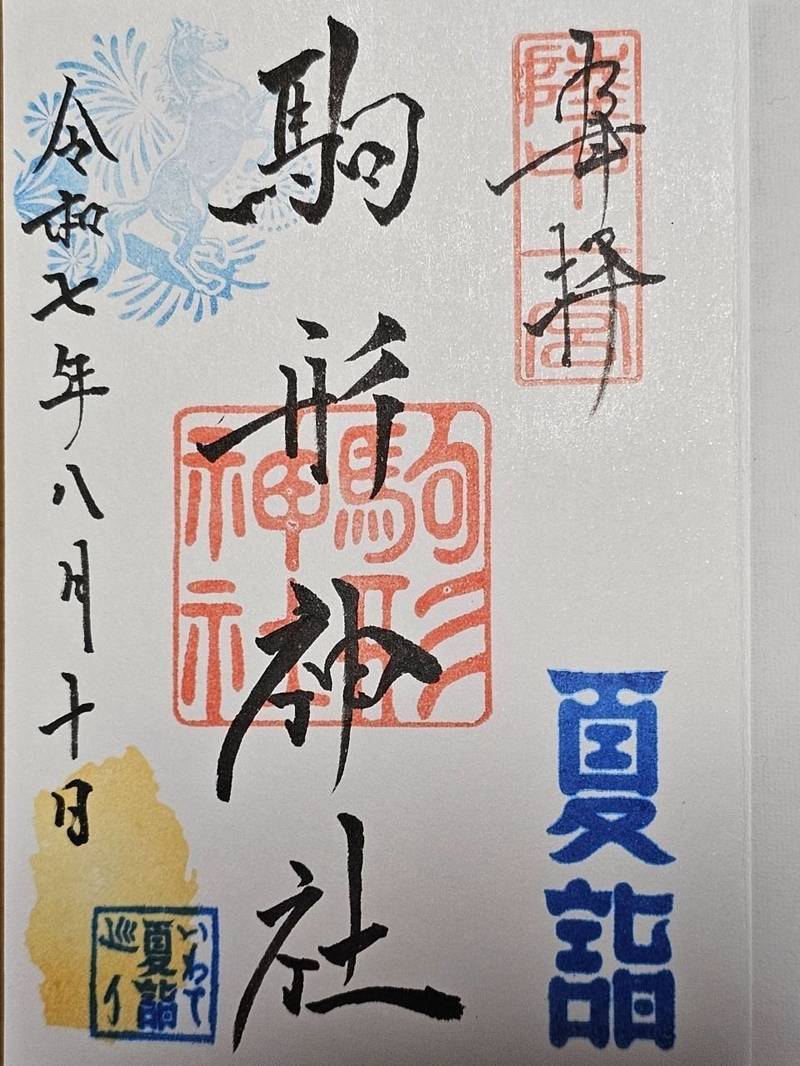 奉拝
陸中一宮
夏詣
駒形神社
駒形
神社
令和七年八月十日
いわて
夏詣
巡り